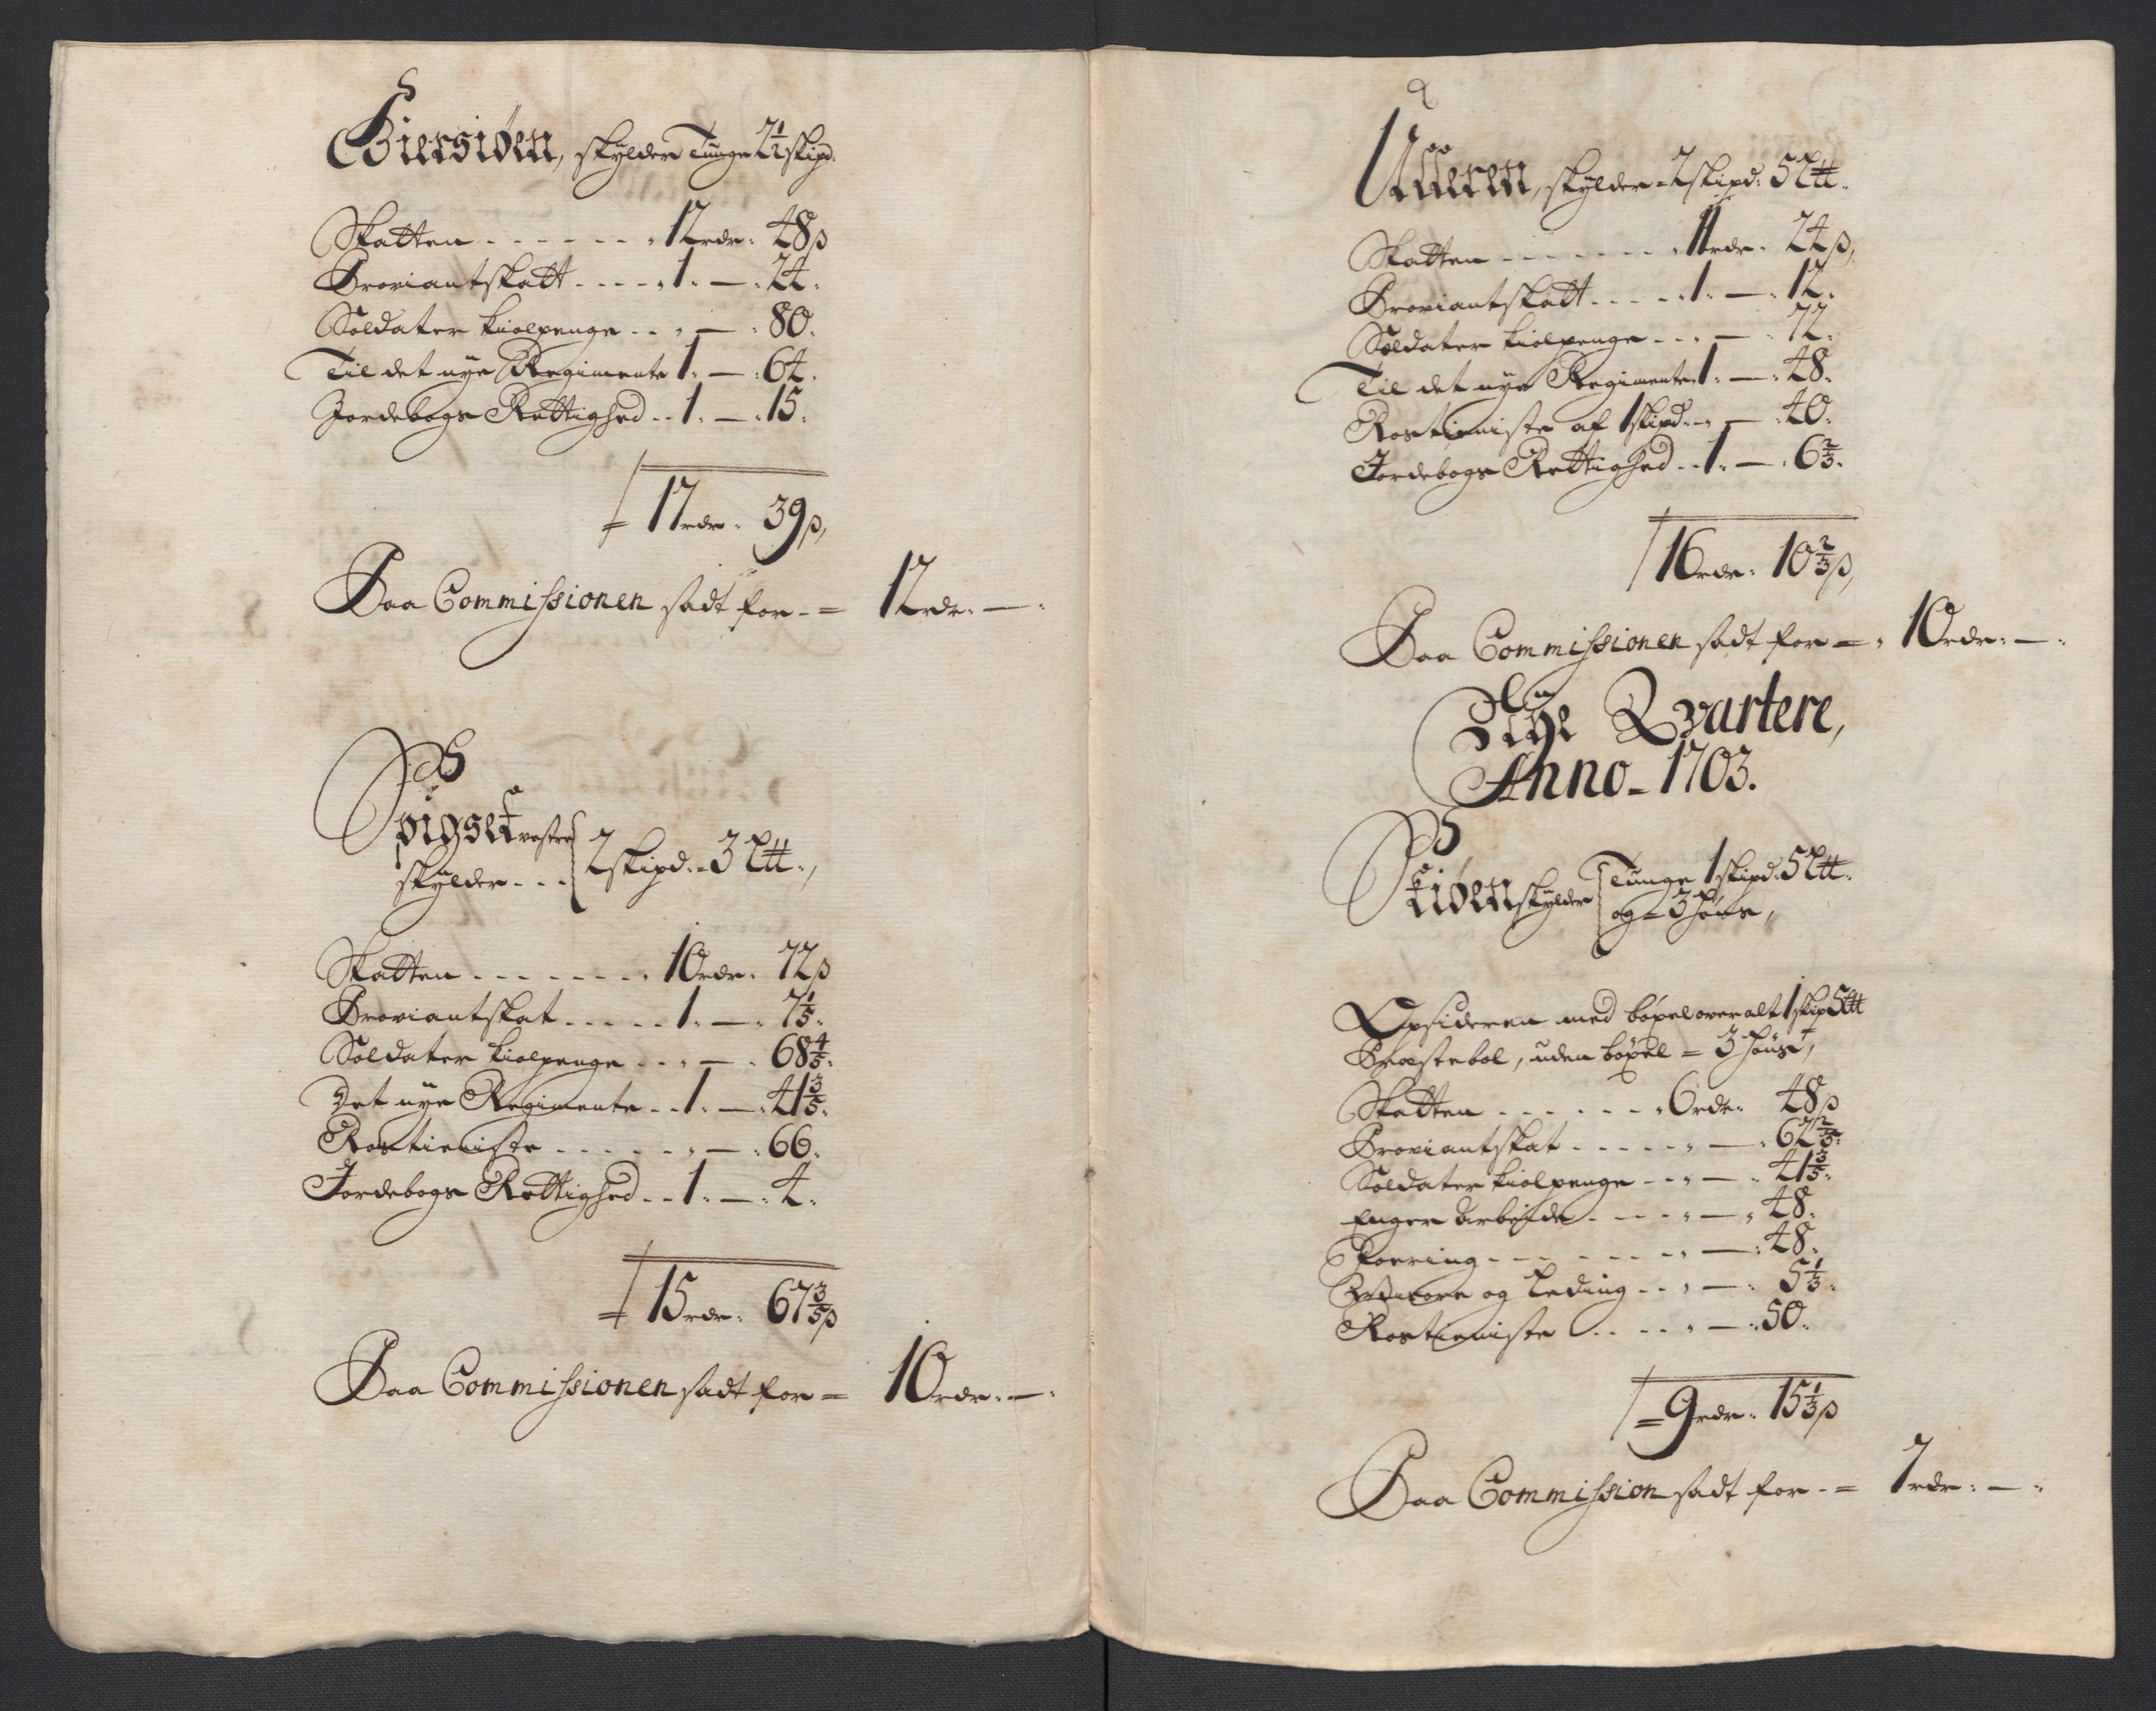 Giersiøen, skylder Tunge 2½ skipd:
Skatten - - - - - - - 12 rdr: 48 ß
Proviantskatt - - - - 1: — : 24:
Soldater kiolpenge - - : — : 80:
Til det nye Regimente 1: — : 64:
Jordebogs Rettighed - - 1: — : 15:
= 17 rdr: 39 ß,
Paa Commissionen sadt for - = 12 rdr: — :
Spigset vestre
skylder - - - 2 skipd: - 3 L℔:,
Skatten - - - - - - - - 10 rdr: 72 ß
Proviantskat - - - - - 1: — : 7 1/5:
Soldater kiolpenge - - - : — : 68 4/5:
Det nye Regimente - - 1: — : 41 3/5:
Rostieniste - - - - - - : — : 66:
Jordebogs Rettighed - - 1: — : 4:
= 15 rdr: 67 3/5 ß
Paa Commissionen sadt for = 10 rdr: — :
skylder - 2 skipd: 5 L℔:
Skatten - - - - - - - 11 rdr: 24 ß,
Proviantskatt - - - - - 1: — : 12:
Soldater kiolpenge - - - : — : 72:
Til det nye Regimente 1: — : 48:
Rostieniste af 1 skipd: - : — : 40:
Jordebogs Rettighed - - 1: — : 6 2/3:
16 rdr: 10 2/3 ß,
Paa Commissionen sadt for = : 10 rdr: — :
Qvartere,
Anno - 1703.
skylder Tunge 1 skipd: 5 L℔:
og = 3
Opsideren med böxel over alt 1 skip 5 L℔
Præstebol, uden böxel = 3
Skatten - - - - - - - 6 rdr: 48 ß
Proviantskat - - - - - : — : 62 2/5:
Soldater kiolpenge - - - : — : 41 3/5:
Enger Arbejde - - - - : — : 48:
Foering - - - - - - - : — : 48:
og Leding - - : — : 5 1/3:
Rostieniste - - - - - : — : 50:
= 9 rdr: 15 1/3 ß
Paa Commission sadt for - = 7 rdr: — :